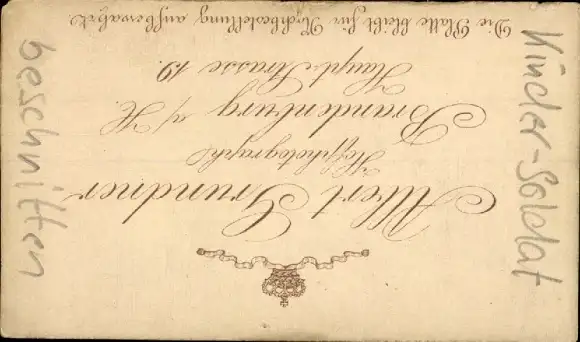 Albert Grundner
Hofphotograph
Brandenburg a/H.
Haupt-Strasse 19.
Die Platte bleibt für Nachbestellung aufbewahrt.
Kinder-Soldat
beschnitten